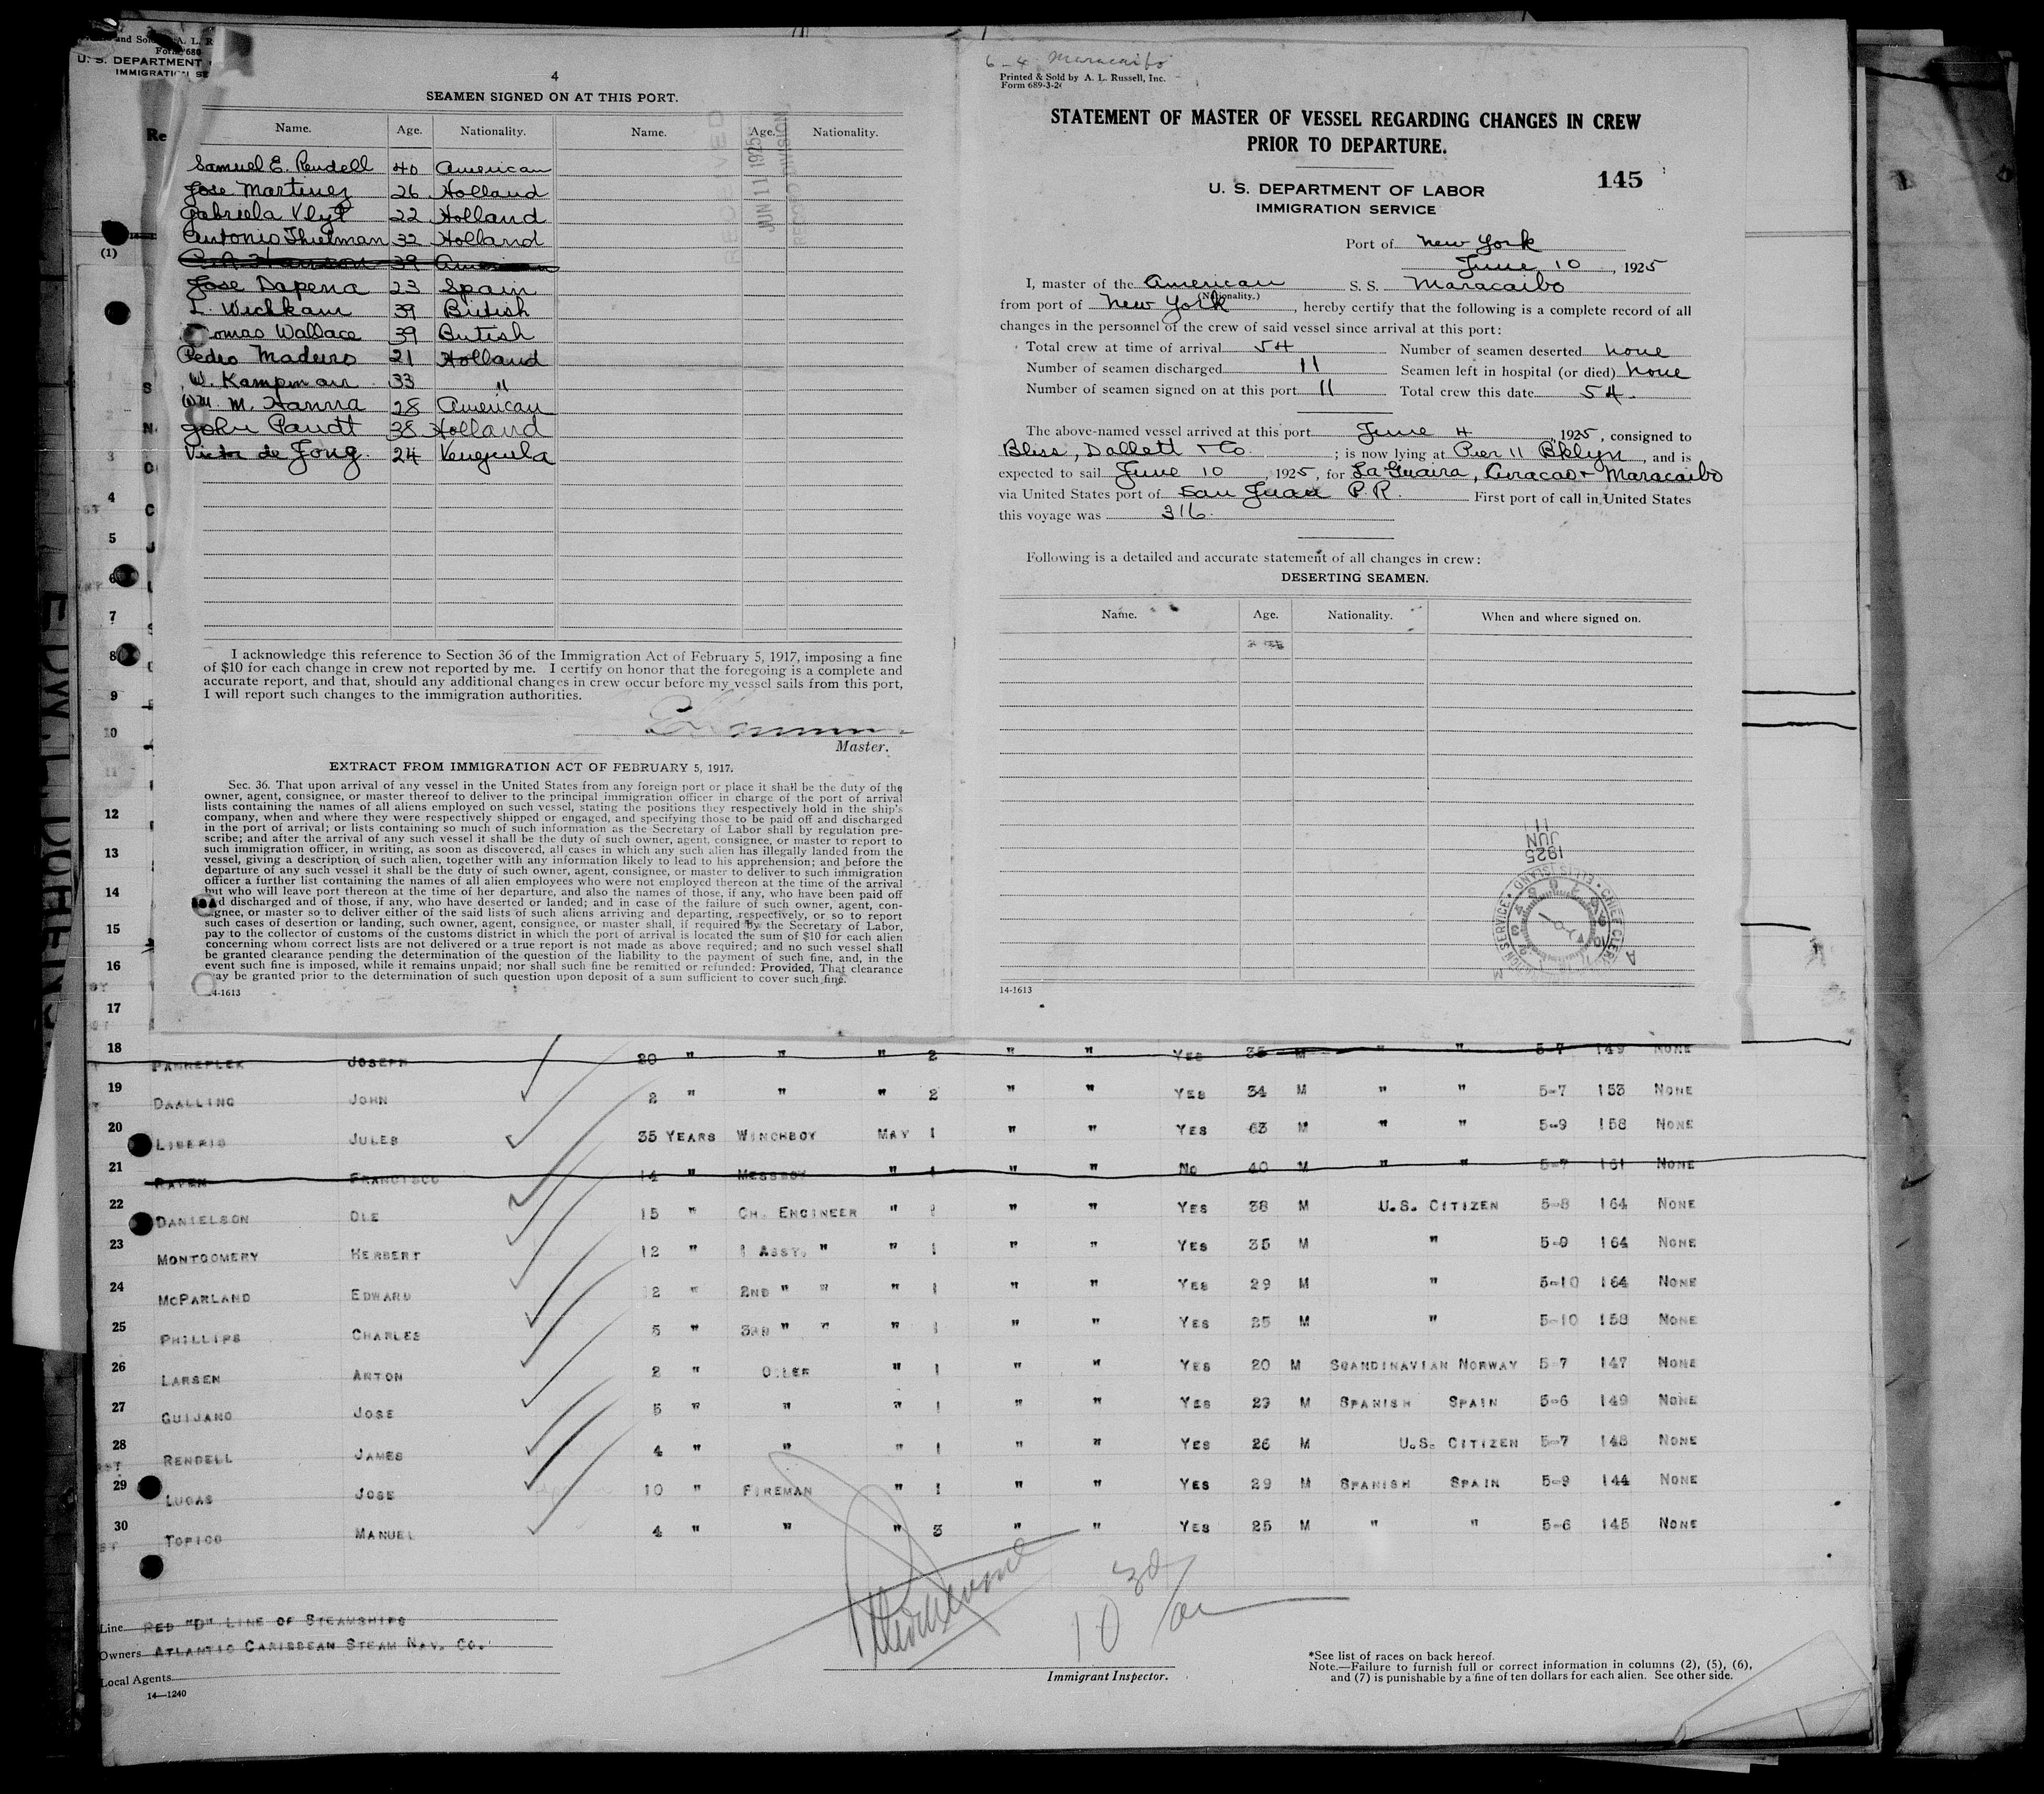 and Sold A. L. R
Form 680
U. S. DEPARTMENT
IMMIGRATION SE
Re
4
SEAMEN SIGNED ON AT THIS PORT.
Name. Age. Nationality. Name. Age. Nationality.
Samuel E. Rendell 40 American
Jose Martinez 26 Holland
Gabriela Vlyt 22 Holland
Antonio Thielman 32 Holland
39 American
Jose Dapena 23 Spain
L. Wickham 39 British
omas Wallace 39 British
Pedro Maduro 21 Holland
W. Kampman 33 "
Wm. M. Hanna 28 American
John Pandt 38 Holland
Victor de Jong 24 Venezuela
RECEIVED
JUN 11 1925
RECORD DIVISION
I acknowledge this reference to Section 36 of the Immigration Act of February 5, 1917, imposing a fine
of $10 for each change in crew not reported by me. I certify on honor that the foregoing is a complete and
accurate report, and that, should any additional changes in crew occur before my vessel sails from this port,
I will report such changes to the immigration authorities.
Master.
EXTRACT FROM IMMIGRATION ACT OF FEBRUARY 5, 1917.
Sec. 36. That upon arrival of any vessel in the United States from any foreign port or place it shall be the duty of the
owner, agent, consignee, or master thereof to deliver to the principal immigration officer in charge of the port of arrival
lists containing the names of all aliens employed on such vessel, stating the positions they respectively hold in the ship's
company, when and where they were respectively shipped or engaged, and specifying those to be paid off and discharged
in the port of arrival; or lists containing so much of such information as the Secretary of Labor shall by regulation pre-
scribe; and after the arrival of any such vessel it shall be the duty of such owner, agent, consignee, or master to report to
such immigration officer, in writing, as soon as discovered, all cases in which any such alien has illegally landed from the
vessel, giving a description of such alien, together with any information likely to lead to his apprehension; and before the
departure of any such vessel it shall be the duty of such owner, agent, consignee, or master to deliver to such immigration
officer a further list containing the names of all alien employees who were not employed thereon at the time of the arrival
but who will leave port thereon at the time of her departure, and also the names of those, if any, who have been paid off
and discharged and of those, if any, who have deserted or landed; and in case of the failure of such owner, agent, con-
signee, or master so to deliver either of the said lists of such aliens arriving and departing, respectively, or so to report
such cases of desertion or landing, such owner, agent, consignee, or master shall, if required by the Secretary of Labor,
pay to the collector of customs of the customs district in which the port of arrival is located the sum of $10 for each alien
concerning whom correct lists are not delivered or a true report is not made as above required; and no such vessel shall
be granted clearance pending the determination of the question of the liability to the payment of such fine, and, in the
event such fine is imposed, while it remains unpaid; nor shall such fine be remitted or refunded: Provided, That clearance
may be granted prior to the determination of such question upon deposit of a sum sufficient to cover such fine.
14-1613
6-4 Maracaibo
Printed & Sold by A. L. Russell, Inc.
Form 689-3-24
STATEMENT OF MASTER OF VESSEL REGARDING CHANGES IN CREW
PRIOR TO DEPARTURE.
145
U. S. DEPARTMENT OF LABOR
IMMIGRATION SERVICE
Port of New York
June 10, 1925
I, master of the American S. S. Maracaibo
(Nationality.)
from port of New York, hereby certify that the following is a complete record of all
changes in the personnel of the crew of said vessel since arrival at this port:
Total crew at time of arrival 54 Number of seamen deserted none
Number of seamen discharged 11 Seamen left in hospital (or died) none
Number of seamen signed on at this port 11 Total crew this date 54.
The above-named vessel arrived at this port June 4, 1925, consigned to
Bliss, Dallett & Co.; is now lying at Pier 11 Bklyn, and is
expected to sail June 10, 1925, for La Guaira, Curacao & Maracaibo
via United States port of San Juan P.R. First port of call in United States
this voyage was 316.
Following is a detailed and accurate statement of all changes in crew:
DESERTING SEAMEN.
Name. Age. Nationality. When and where signed on.
1925
JUN
11
14-1613
(1)
3
4
5
6
7
8
9
10
11
12
13
14
15
16
17
18 PANNEFLEK JOSEPH 20 " " " 2 " " YES 35 M " " 5-7 149 NONE
19 DAALLING JOHN 2 " " " 2 " " YES 34 M " " 5-7 153 NONE
20 LIBERIS JULES 35 YEARS WINCHBOY MAY 1 " " YES 63 M " " 5-9 158 NONE
21 RAVEN FRANCISCO 14 " MESSBOY " 1 " " NO 40 M " " 5-7 161 NONE
22 DANIELSON OLE 15 " CH. ENGINEER " 1 " " YES 38 M U.S. CITIZEN 5-8 164 NONE
23 MONTGOMERY HERBERT 12 " 1 ASST. " " 1 " " YES 35 M " 5-9 164 NONE
24 MCPARLAND EDWARD 12 " 2ND " " " 1 " " YES 29 M " 5-10 164 NONE
25 PHILLIPS CHARLES 5 " 3RD " " " 1 " " YES 25 M " 5-10 158 NONE
26 LARSEN ANTON 2 " OILER " 1 " " YES 20 M SCANDINAVIAN NORWAY 5-7 147 NONE
27 GUIJANO JOSE 5 " " " 1 " " YES 29 M SPANISH SPAIN 5-6 149 NONE
28 RENDELL JAMES 4 " " " 1 " " YES 26 M U.S. CITIZEN 5-7 148 NONE
29 LUGAS JOSE 10 " FIREMAN " 1 " " YES 29 M SPANISH SPAIN 5-9 144 NONE
30 TOPICO MANUEL 4 " " " 3 " " YES 25 M " " 5-6 145 NONE
10 30 am
Line RED "D" LINE OF STEAMSHIPS
Owners ATLANTIC CARIBBEAN STEAM NAV. CO.
Local Agents
14—1240
Immigrant Inspector.
*See list of races on back hereof.
Note.—Failure to furnish full or correct information in columns (2), (5), (6),
and (7) is punishable by a fine of ten dollars for each alien. See other side.